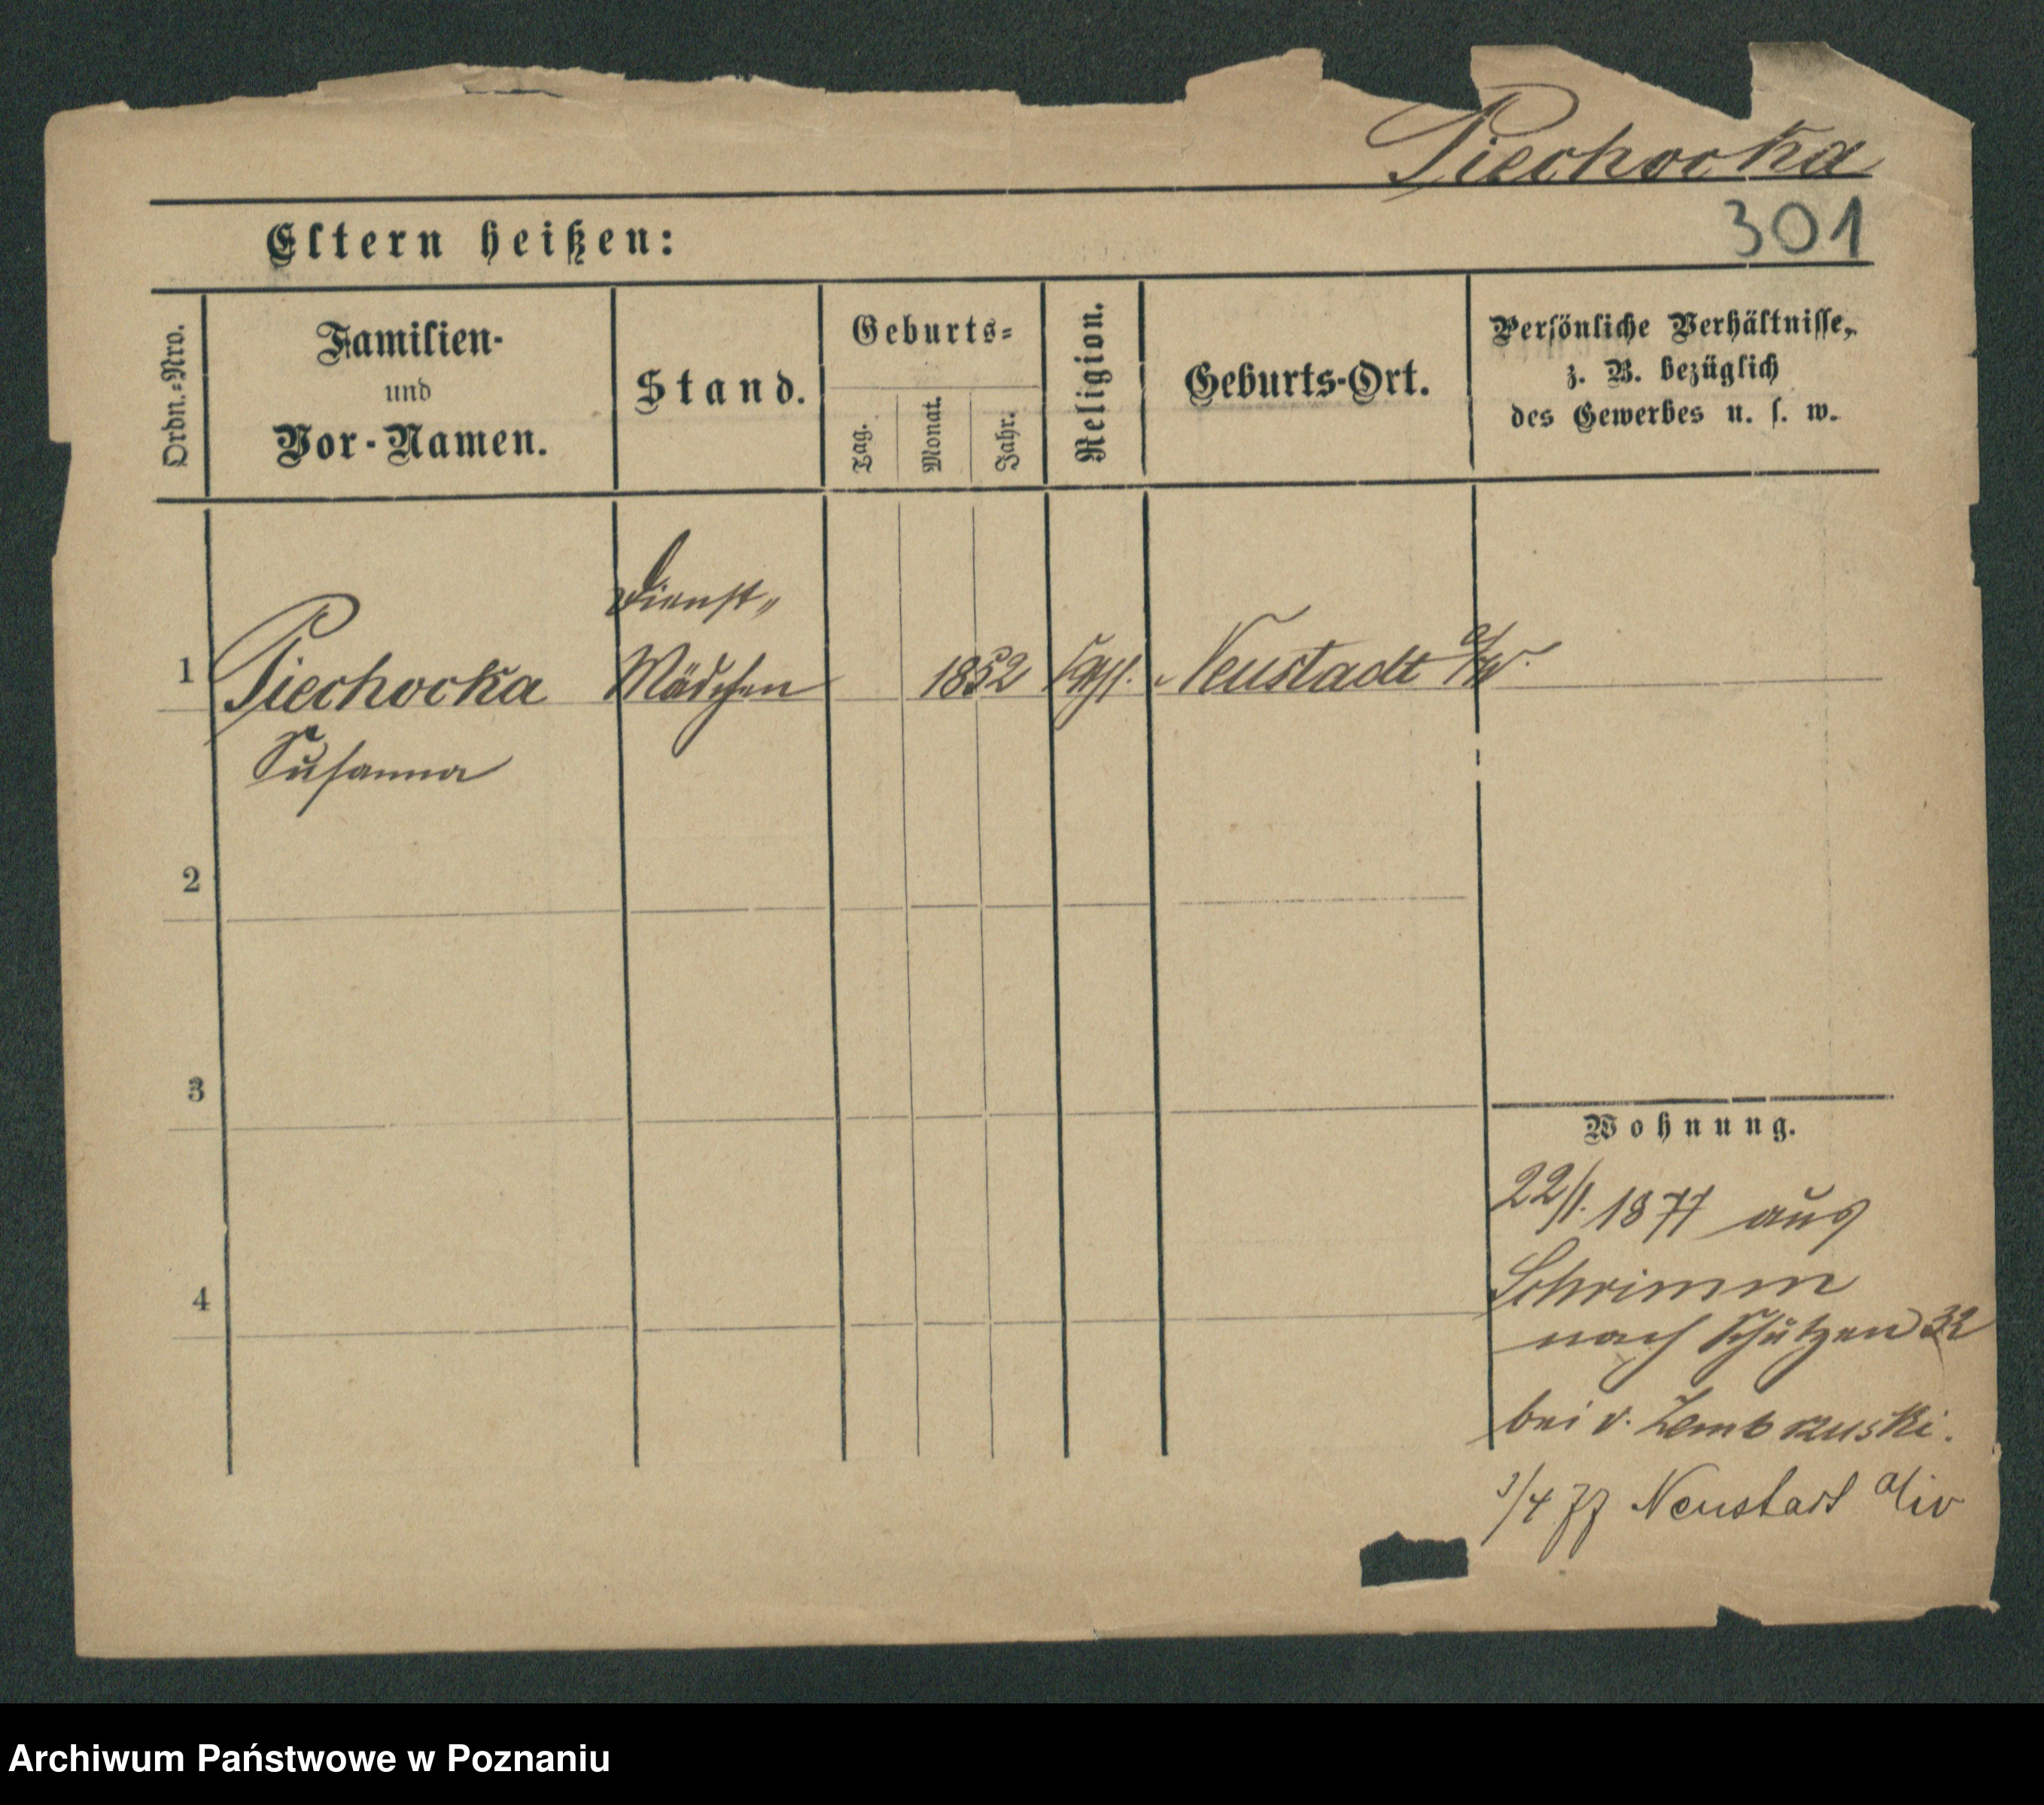 Piechocka
301
Eltern heißen:
Ordn.=Nro.
Familien-
und
Vor-Namen.
Stand.
Geburts=
Tag.
Monat.
Jahr.
Religion.
Geburts-Ort.
Persönliche Verhältnisse,
z. B. bezüglich
des Gewerbes u. s. w.
Dienst„
1 Piechocka Mädchen 1852 Neustadt a/W.
Susanna
2
3
4
Wohnung.
22/1. 1877 aus
Schrimm
nach Schützen 32
bei v. Zembrzuski.
3/4 77 Neustadt
Archiwum Państwowe w Poznaniu